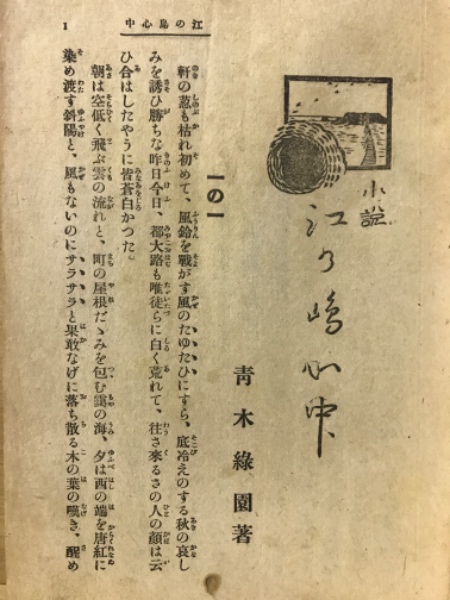 小説
江の嶋心中
青木綠園著
一の一
軒の荵も枯れ初めて、風鈴を戰がす風のたゆたひにすら、底冷えのする秋の哀し
みを誘ひ勝ちな昨日今日、都大路も唯徒らに白く荒れて、往さ來るさの人の顔は云
ひ合はしたやうに皆蒼白かつた。
朝は空低く飛ぶ雲の流れと、町の屋根だゝみを包む靄の海、夕は西の端を唐紅に
染め渡す斜陽と、風もないのにサラサラと果敢なげに落ち散る木の葉の嘆き、醒め
江の島心中
1